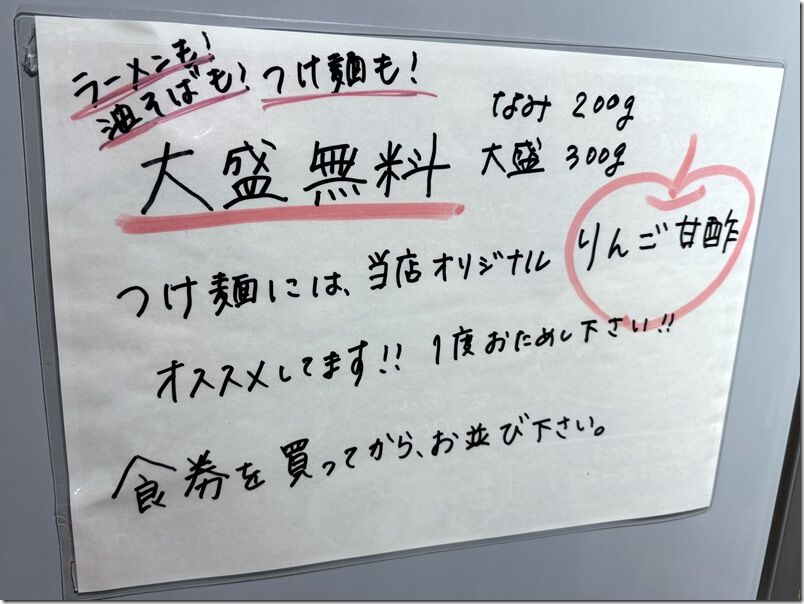 ラーメンも!
油そばも! つけ麺も!
なみ 200g
大盛無料 大盛 300g
つけ麺には、当店オリジナル りんご甘酢
オススメしてます!! 1度おためし下さい!!
食券を買ってから、お並び下さい。